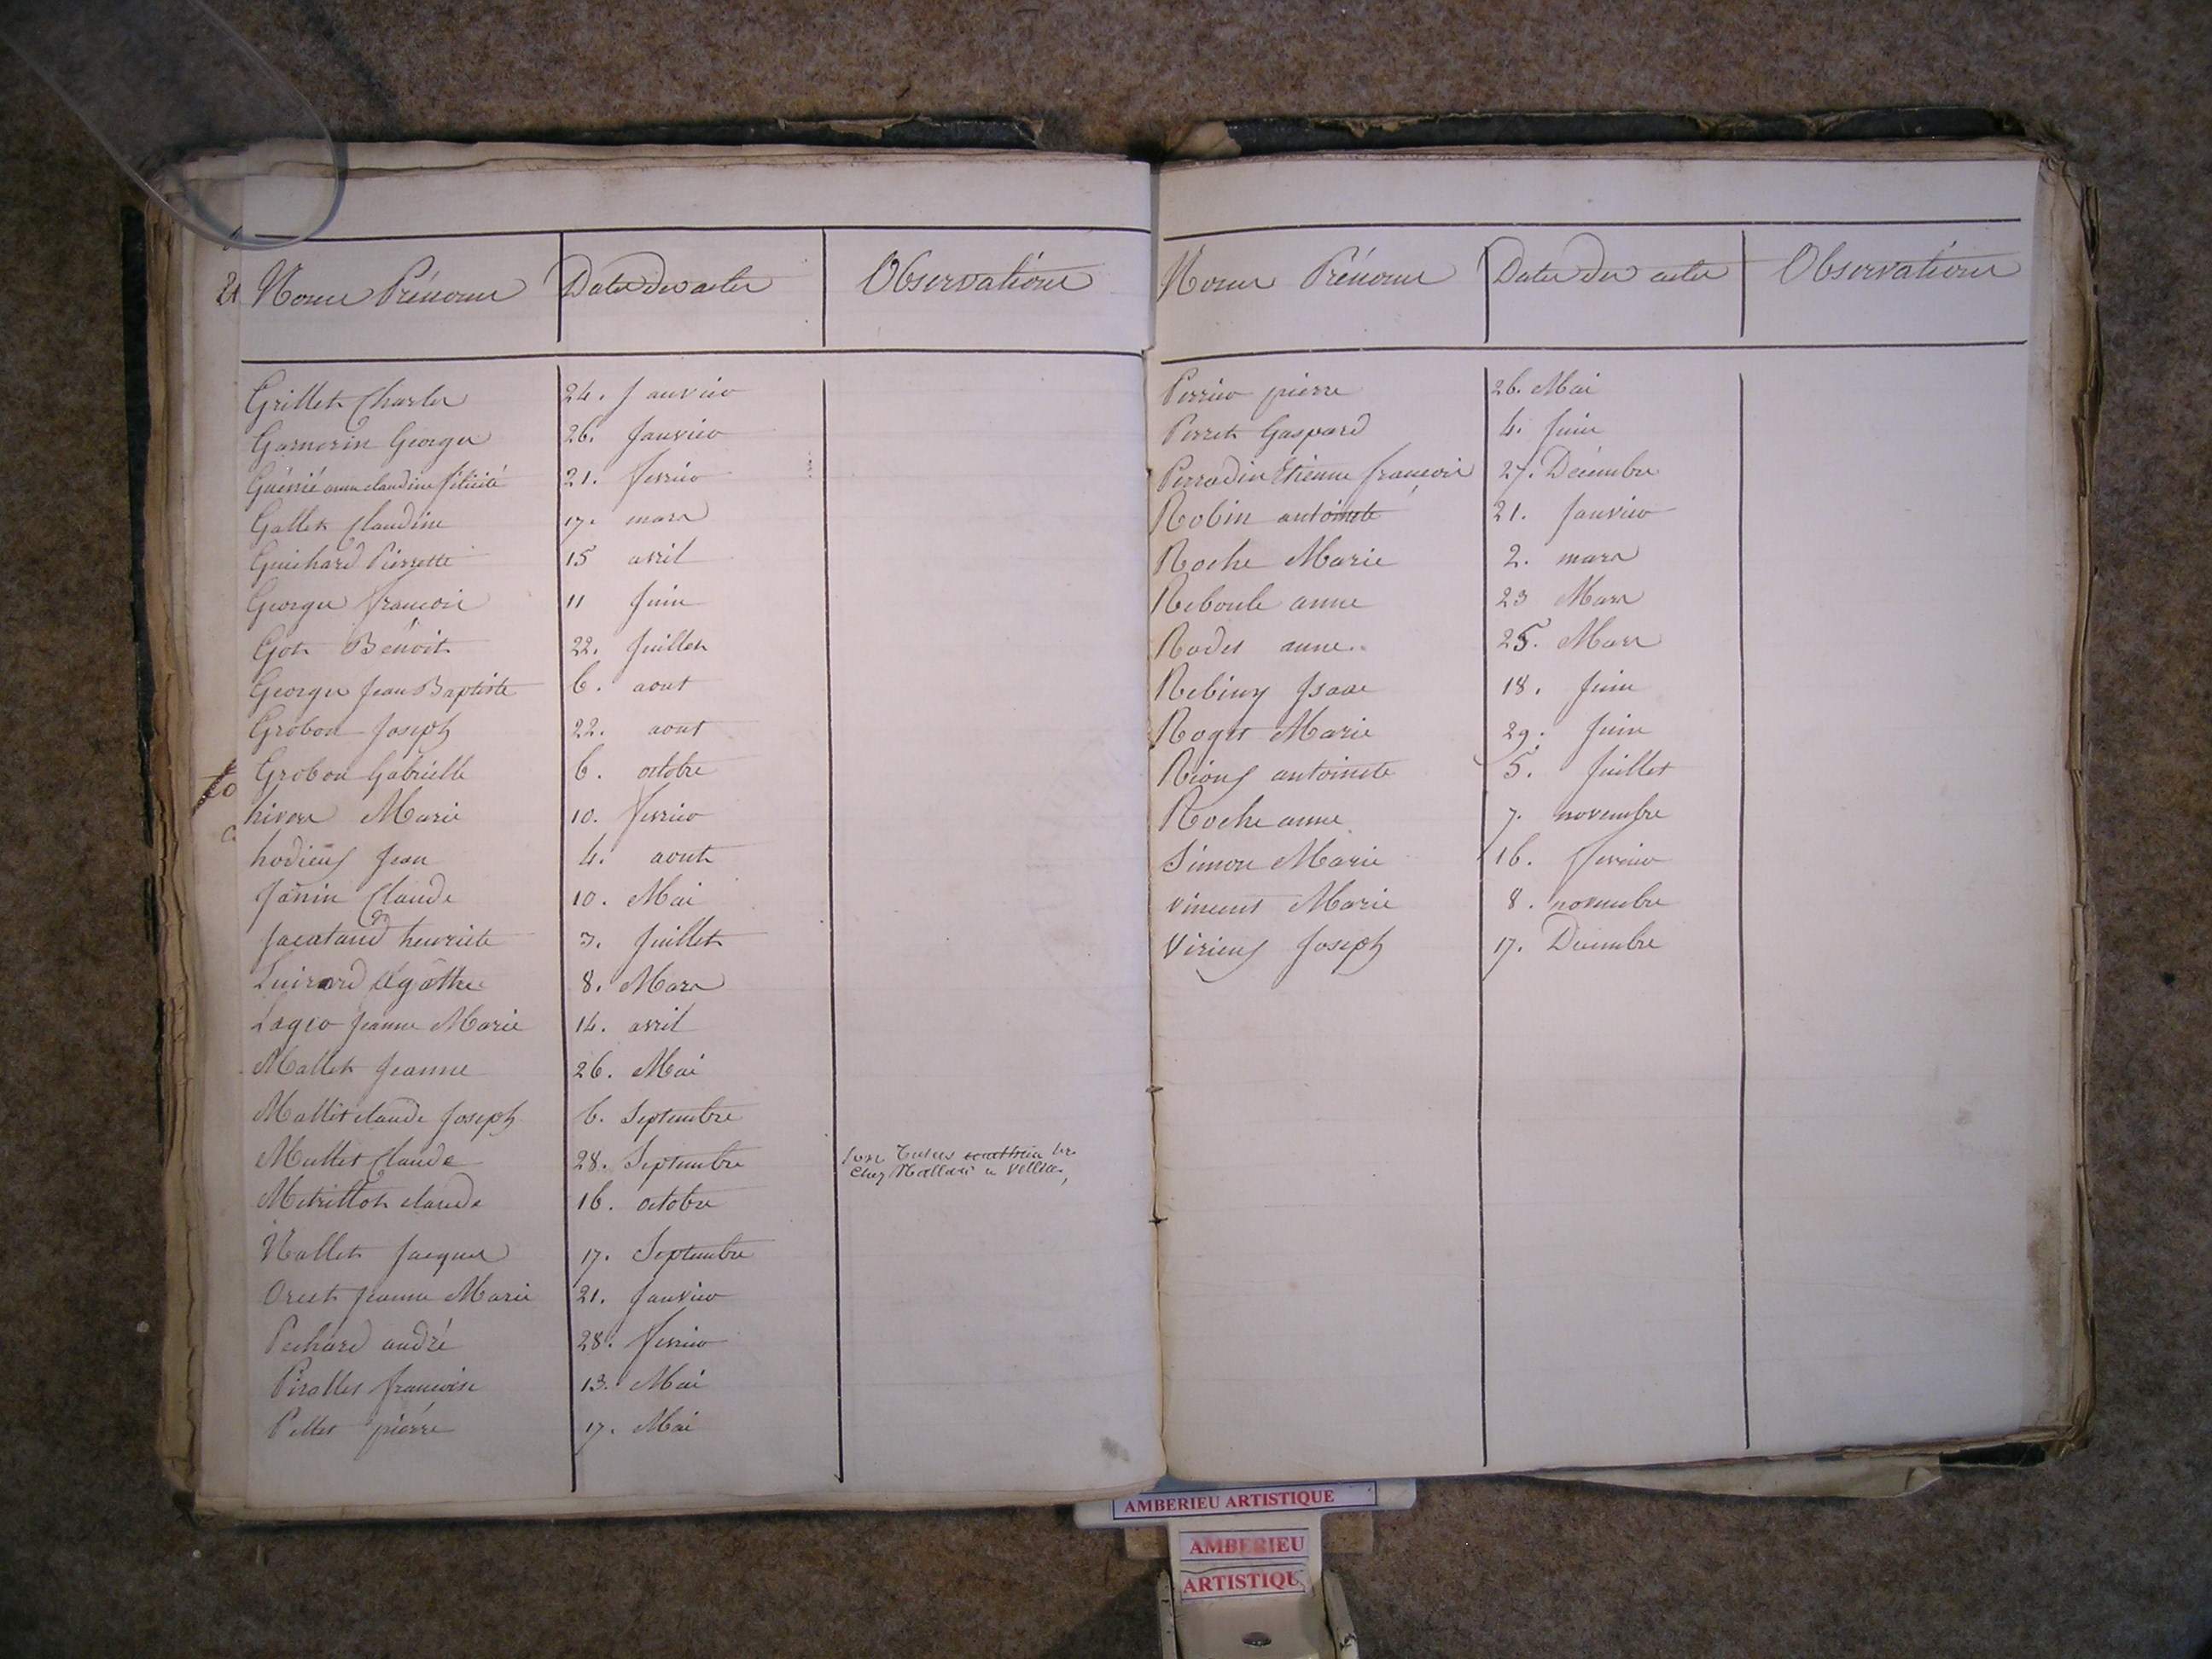 Noms Prénoms Dates des actes Observations
Grillet Charles 24. Janvier
Garnerin Georges 26. Janvier
Guénié anne claudine félicité 21. fevrier
Gallet Claudine 17. mars
Guichard Pierrette 15 avril
Georges françois 11 Juin
Got Benoit 22. Juillet
Georges Jean Baptiste 6. aout
Grobon Joseph 22. aout
Grobon Gabrielle 6. octobre
hivers Marie 10. fevrier
hodieux Jean 4. aout
Janin Claude 10. Mai
henriete 3. Juillet
Luizard Agathe 8. Mars
Lager Jeanne Marie 14. avril
Mallet Jeanne 26. Mai
Mallet claude Joseph 6. Septembre
Mallet Claude 28. Septembre
chez a
claude 16. octobre
Nallet Jacques 17. Septembre
Orset Jeanne Marie 21. Janvier
Pechard andré 28. fevrier
Pirallet francoise 13. Mai
Pellet pierre 17. Mai
Noms Prénoms Dates des actes Observations
Perrier pierre 26. Mai
Perret Gaspard 4. Juin
Perradin Etienne françois 27. Décembre
Robin antoinete 21. Janvier
Roche Marie 2. mars
Reboule anne 23 Mars
Rodet anne 25. Mars
Isaac 18. Juin
Roget Marie 29. Juin
Rioux antoinete 5. Juillet
Roche anne 7. novembre
Simon Marie 16. fevrier
vincent Marie 8. novembre
virieux Joseph 17. Decembre
AMBERIEU ARTISTIQUE
AMBERIEU
ARTISTIQU